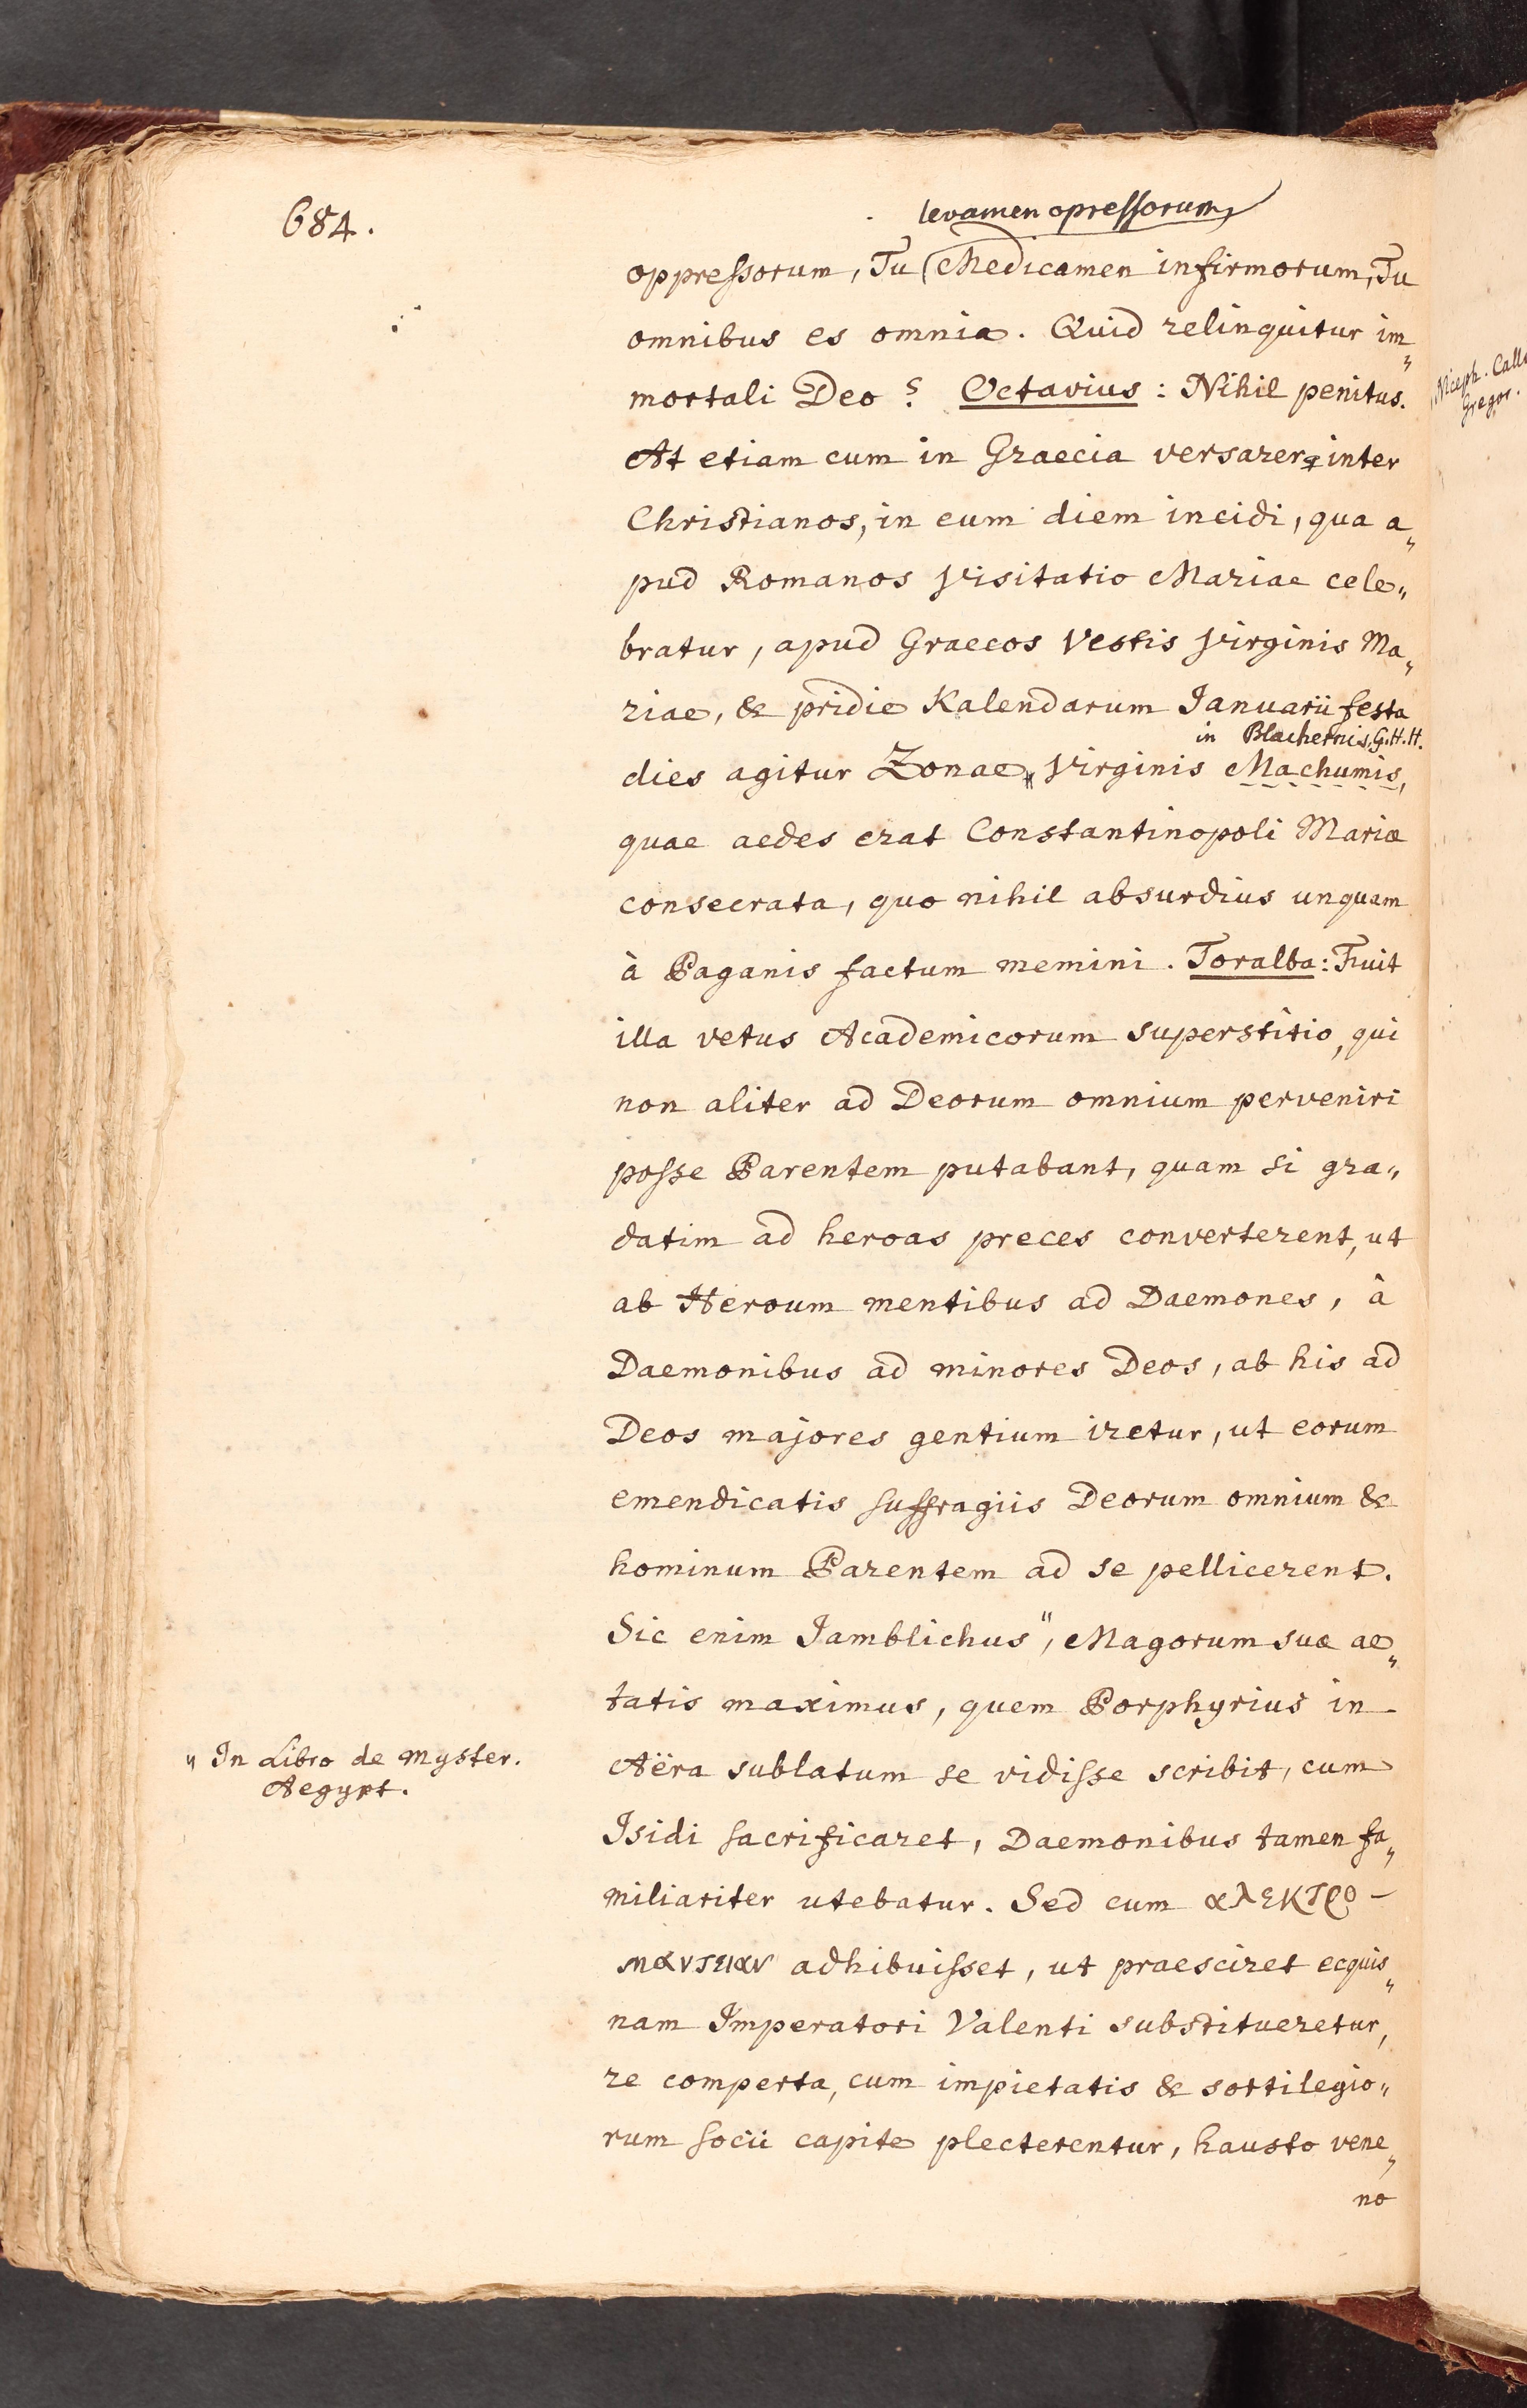 684.
levamen opressorum
oppressorum, Tu (Medicamen infirmorum, Tu
omnibus es omnia. Quid relinquitur im„
mortali Deo? Octavius: Nihil penitus.
At etiam cum in Graecia versarer inter
Christianos, in eum diem incidi, qua a„
pud Romanos Visitatio Mariae cele„
bratur, apud Graecos Vestis Virginis Ma„
riae, & pridie Kalendarum Januarii festa
in Blachernis. G.H.H.
dies agitur Zonae Virginis Machumis,
quae aedes erat Constantinopoli Mariæ
consecrata, quo nihil absurdius unquam
à Paganis factum memini. Toralba: Fuit
illa vetus Academicorum superstitio, qui
non aliter ad Deorum omnium perveniri
posse Parentem putabant, quam si gra„
datim ad heroas preces converterent, ut
ab Heroum mentibus ad Daemones, à
Daemonibus ad minores Deos, ab his ad
Deos majores gentium iretur, ut eorum
emendicatis suffragiis Deorum omnium &
hominum Parentem ad se pellicerent.
Sic enim Jamblichus", Magorum suæ ae„
tatis maximus, quem Porphyrius in
" In Libro de Myster.
Aegypt.
Aëra sublatum se vidisse scribit, cum
Isidi sacrificaret, Daemonibus tamen fa„
miliariter utebatur. Sed cum αλεκτρο-
μαντειαν adhibuisset, ut praesciret ecquis„
nam Imperatori Valenti substitueretur,
re comperta, cum impietatis & sortilegio„
rum socii capite plecterentur, hausto vene„
no
Niceph. Call
Gregor.